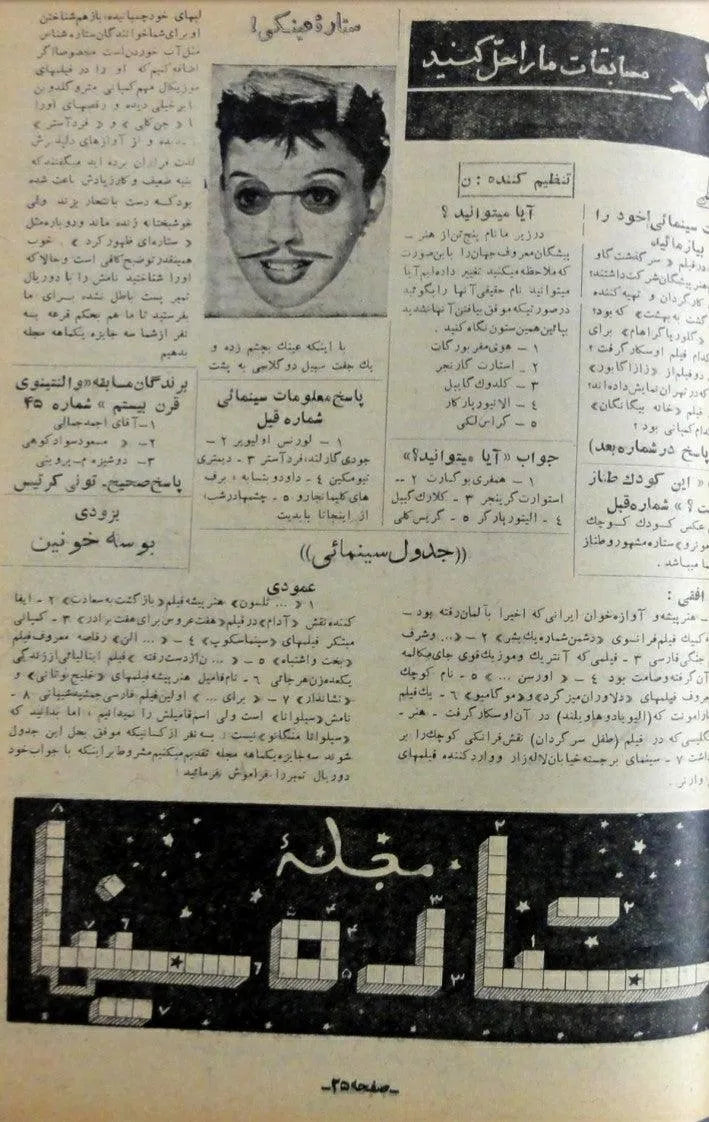 مسابقات ما را حل کنید
تنظیم کننده : ن
آیا میتوانید ؟
در زیر ما نام پنج تن از هنر -
پیشگان معروف جهان را باین صورت
که ملاحظه میکنید تغییر داده ایم آیا
میتوانید نام حقیقی آنها را بگوئید
در صورتیکه موفق بیافتن آنها نشدید
بپائین همین ستون نگاه کنید .
۱ - هونی مفر بورگات
۲ - استارت گارنجر
۳ - کلدوک گاپبل
٤ - الانیور پارکار
٥ - گراس لکی
جواب «آیا میتوانید؟»
۱ - همفری بوگارت ۲ -
استوارت گرینجر ۳ - کلارک گیبل
٤ - الینور پارکر ٥ - گریس کلی
ت سینمائی خود را
بیازمائید
در فیلم « سرگذشت گاو
هنرپیشگان شرکت داشتند؟
کارگردان و تهیه کننده
گشت به بهشت» که بود؟
«گلوریا گراهام» برای
کدام فیلم اوسکار گرفت ؟
دو فیلم از «زازا گابور»
که در تهران نمایش داده اند؟
فیلم «خانه بیگانگان»
کدام کمپانی بود ؟
پاسخ در شماره بعد)
« این کودک طناز
ت ؟ » شماره قبل
عکس کودک کوچک
مونرو» ستاره مشهور و طناز
ما میباشد .
ستارهٔ عینکی!
با اینکه عینک بچشم زده و
یک جفت سبیل دوگلاسی به پشت
لبهای خود چسبانیده، باز هم شناختن
او برای شما خوانندگان ستاره شناس
مثل آب خوردن است مخصوصا اگر
اضافه کنیم که او را در فیلمهای
موزیکال مهم کمپانی متروگلدوین
مایر خیلی دیده و رقصهای او را
با «جن کلی» و «فرد آستر»
دیده و از آوازهای دلپذیرش
لذت فراوان برده اید میگفتند که
بنیه ضعیف و کار زیادش باعث شده
بود که دست بانتحار بزند ولی
خوشبختانه زنده ماند و دوباره مثل
« ستاره ای ظهور کرد » . خوب
همینقدر توضیح کافی است و حالا که
او را شناختید نامش را با دو ریال
تمبر پست باطل نشده برای ما
بفرستید تا ما هم بحکم قرعه بسه
نفر از شما سه جایزه یکماهه مجله
بدهیم
پاسخ معلومات سینمائی
شماره قبل
۱ - لورنس اولیویر ۲ -
جودی گارلند، فرد آستر ۳ - دیمتری
تیومکین ٤ - داود و بتشابه ، برف
های کلیمانجارو ٥ - چشمها در شب؛
از اینجا تا بابدیت
برندگان مسابقه «والنتینوی
قرن بیستم » شماره ٤۵
۱ - آقای احمد جمالی
۲ - « مسعود سوادکوهی
۳ - دوشیزه م. پروینی
پاسخ صحیح - تونی کرتیس
بزودی
بوسه خونین
((جدول سینمائی))
افقی :
- هنرپیشه و آوازه خوان ایرانی که اخیرا بآلمان رفته بود -
که کمپانی فیلم فرانسوی «دشمن شماره یک بشر» ۲ - «... و شرف
جنگی فارسی ۳ - فیلمی که آنتریک و موزیک قوی جای مکالمه
آن گرفته و صامت بود ٤ - « اورسن ... » ٥ - نام کوچک
معروف فیلمهای «دلاوران میز گرد» و «موگامبو» ٦ - یک فیلم
پارامونت که (الیویا دوهاویلند) در آن اوسکار گرفت - هنر -
گلیسی که در فیلم (طفل سرگردان) نقش فرانکی کوچک را بر
داشت ۷ - سینمای برجسته خیابان لاله زار و وارد کننده فیلمهای
وارنر .
عمودی
۱ «... تلسون» هنرپیشه فیلم «بازگشت به سعادت» ۲ - ایفا
کننده نقش «آدام» در فیلم «هفت عروس برای هفت برادر» ۳ - کمپانی
مبتکر فیلمهای «سینماسکوپ» ٤ - « ... الن» رقاصه معروف فیلم
«بخت و اشتباه» ٥ - « ... ن از دست رفته » فیلم ایتالیائی از زندگی
یکعده زن هر جائی ٦ - نام فامیل هنرپیشه فیلمهای «خلیج توفانی» و
«نشاندار» ۷ - « برای ... » اولین فیلم فارسی جمشید شیبانی ۸ -
نامش (سیلوانا) است ولی اسم فامیلش را نمیدانیم ، اما بدانید که
(سیلوانا منگانو) نیست: بسه نفر از کسانیکه موفق بحل این جدول
شوند سه جایزه یکماهه مجله تقدیم میکنیم مشروط براینکه با جواب خود
دو ریال تمبر را فراموش نفرمائید!
مجلهٔ
ستاره سینما
- صفحه ۲۵ -